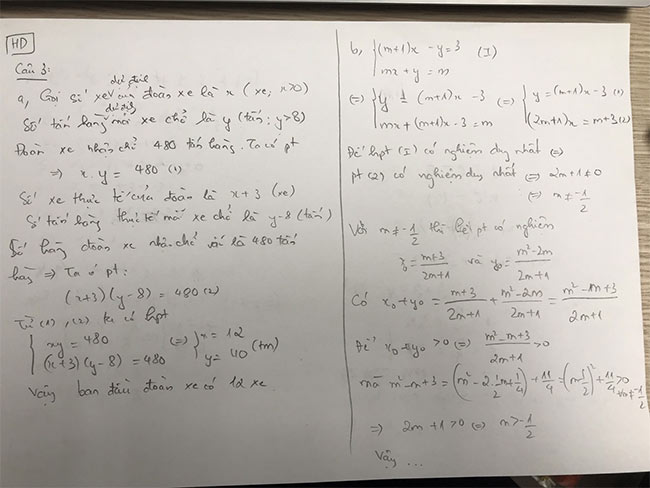 HD
Câu 3:
dự định
a, Gọi số xe của đoàn xe là x (xe; x>0)
dự định
Số tấn hàng mỗi xe chở là y (tấn; y>8)
Đoàn xe nhận chở 480 tấn hàng. Ta có pt
=> x.y = 480 (1)
Số xe thực tế của đoàn là x+3 (xe)
Số tấn hàng thực tế mỗi xe chở là y-8 (tấn)
hàng đoàn xe chở vẫn là 480 tấn
=> Ta có pt:
(x+3)(y-8) = 480 (2)
Từ (1), (2) ta có hpt
{ xy = 480 (=) { x = 12
(x+3)(y-8) = 480 y = 40 (tm)
Vậy ban đầu đoàn xe có 12 xe.
b, { (m+1)x - y = 3 (I)
mx + y = m
(=) { y = (m+1)x - 3 (=) { y = (m+1)x - 3 (1)
mx + (m+1)x - 3 = m (2m+1)x = m+3 (2)
Để hpt (I) có nghiệm duy nhất (=)
pt (2) có nghiệm duy nhất (=) 2m+1 ≠ 0
(=) m ≠ -1/2
Với m ≠ -1/2 thì hệ pt có nghiệm
x₀ = (m+3)/(2m+1) và y₀ = (m²-2m)/(2m+1)
Có x₀ + y₀ = (m+3)/(2m+1) + (m²-2m)/(2m+1) = (m²-1m+3)/(2m+1)
Để x₀ + y₀ > 0 (=) (m²-m+3)/(2m+1) > 0
mà m²-m+3 = (m² - 2.1/2 m + 1/4) + 11/4 = (m-1/2)² + 11/4 > 0
∀m ≠ -1/2
=> 2m+1 > 0 (=) m > -1/2
Vậy ...